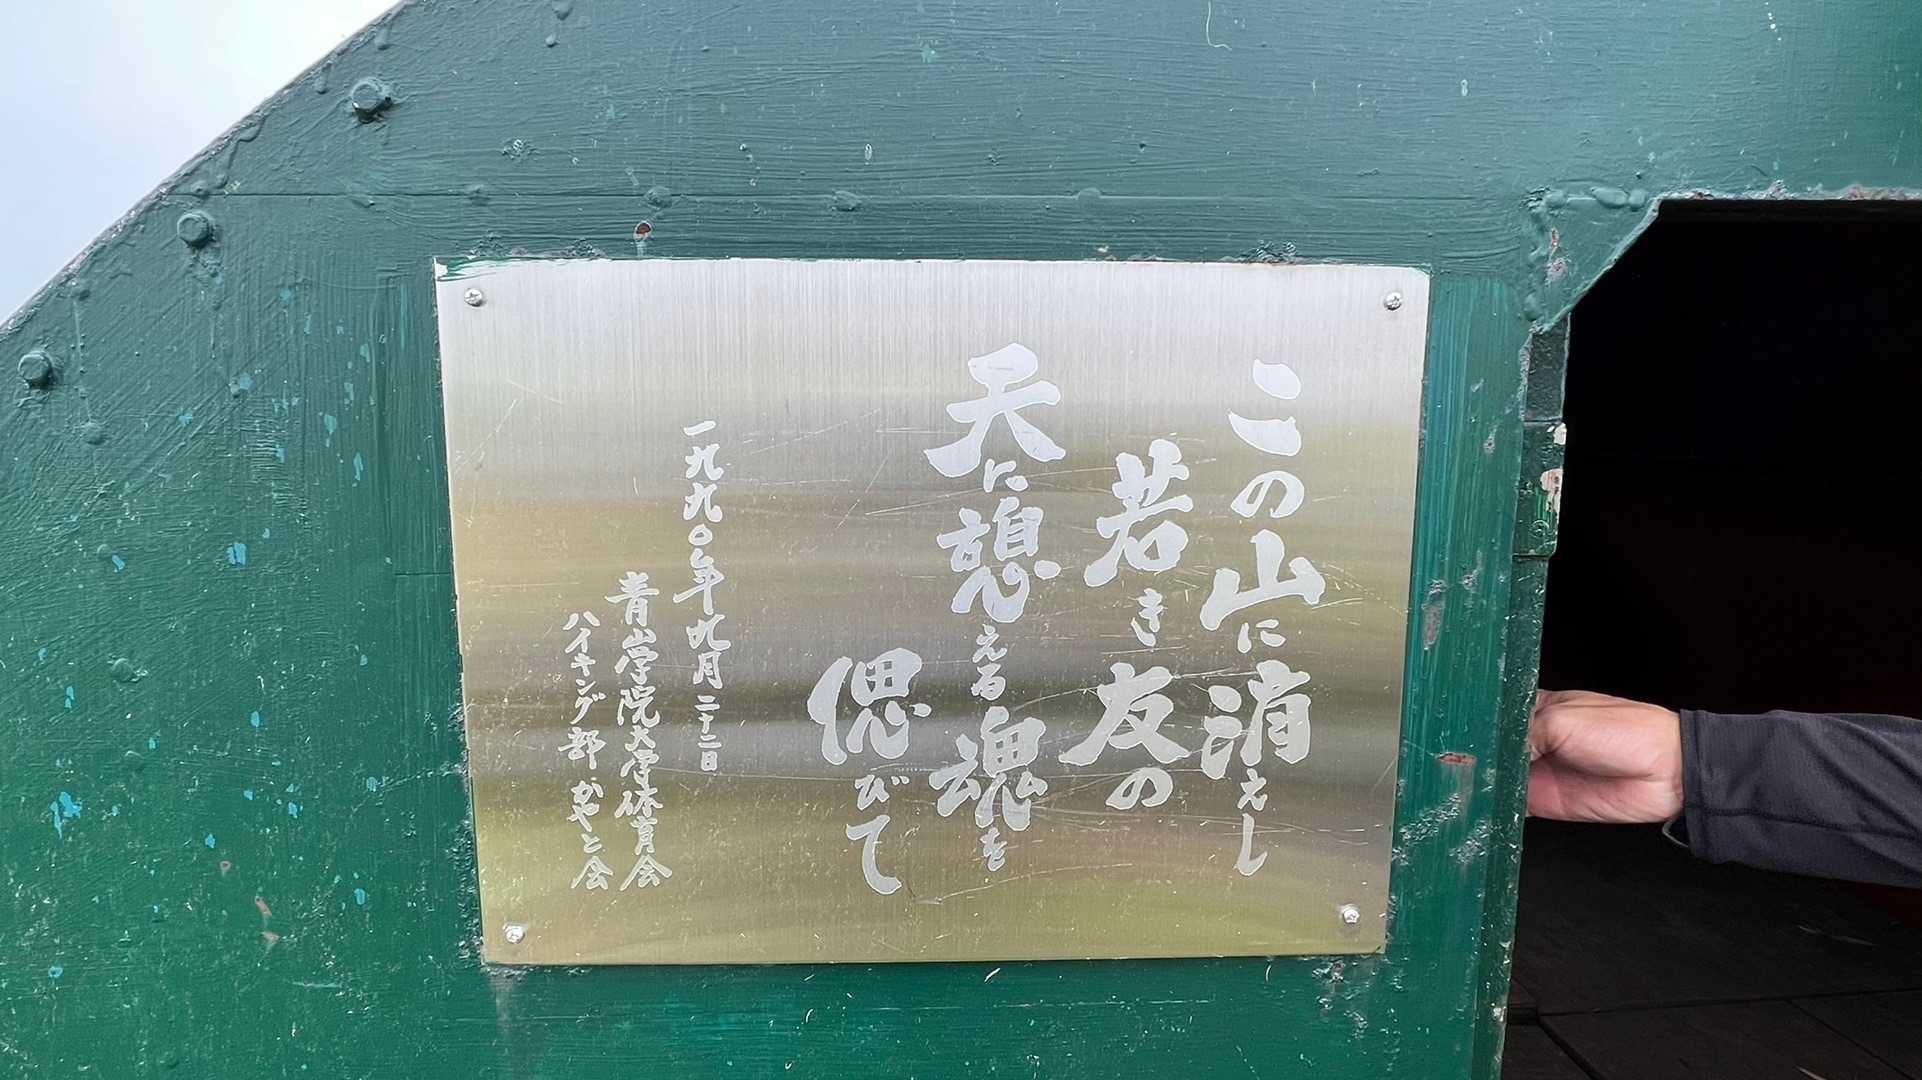 この山に消えし
若き友の
天に憩える魂を
偲びて
一九九〇年九月二十二日
青山学院大学体育会
ハイキング部かやと会